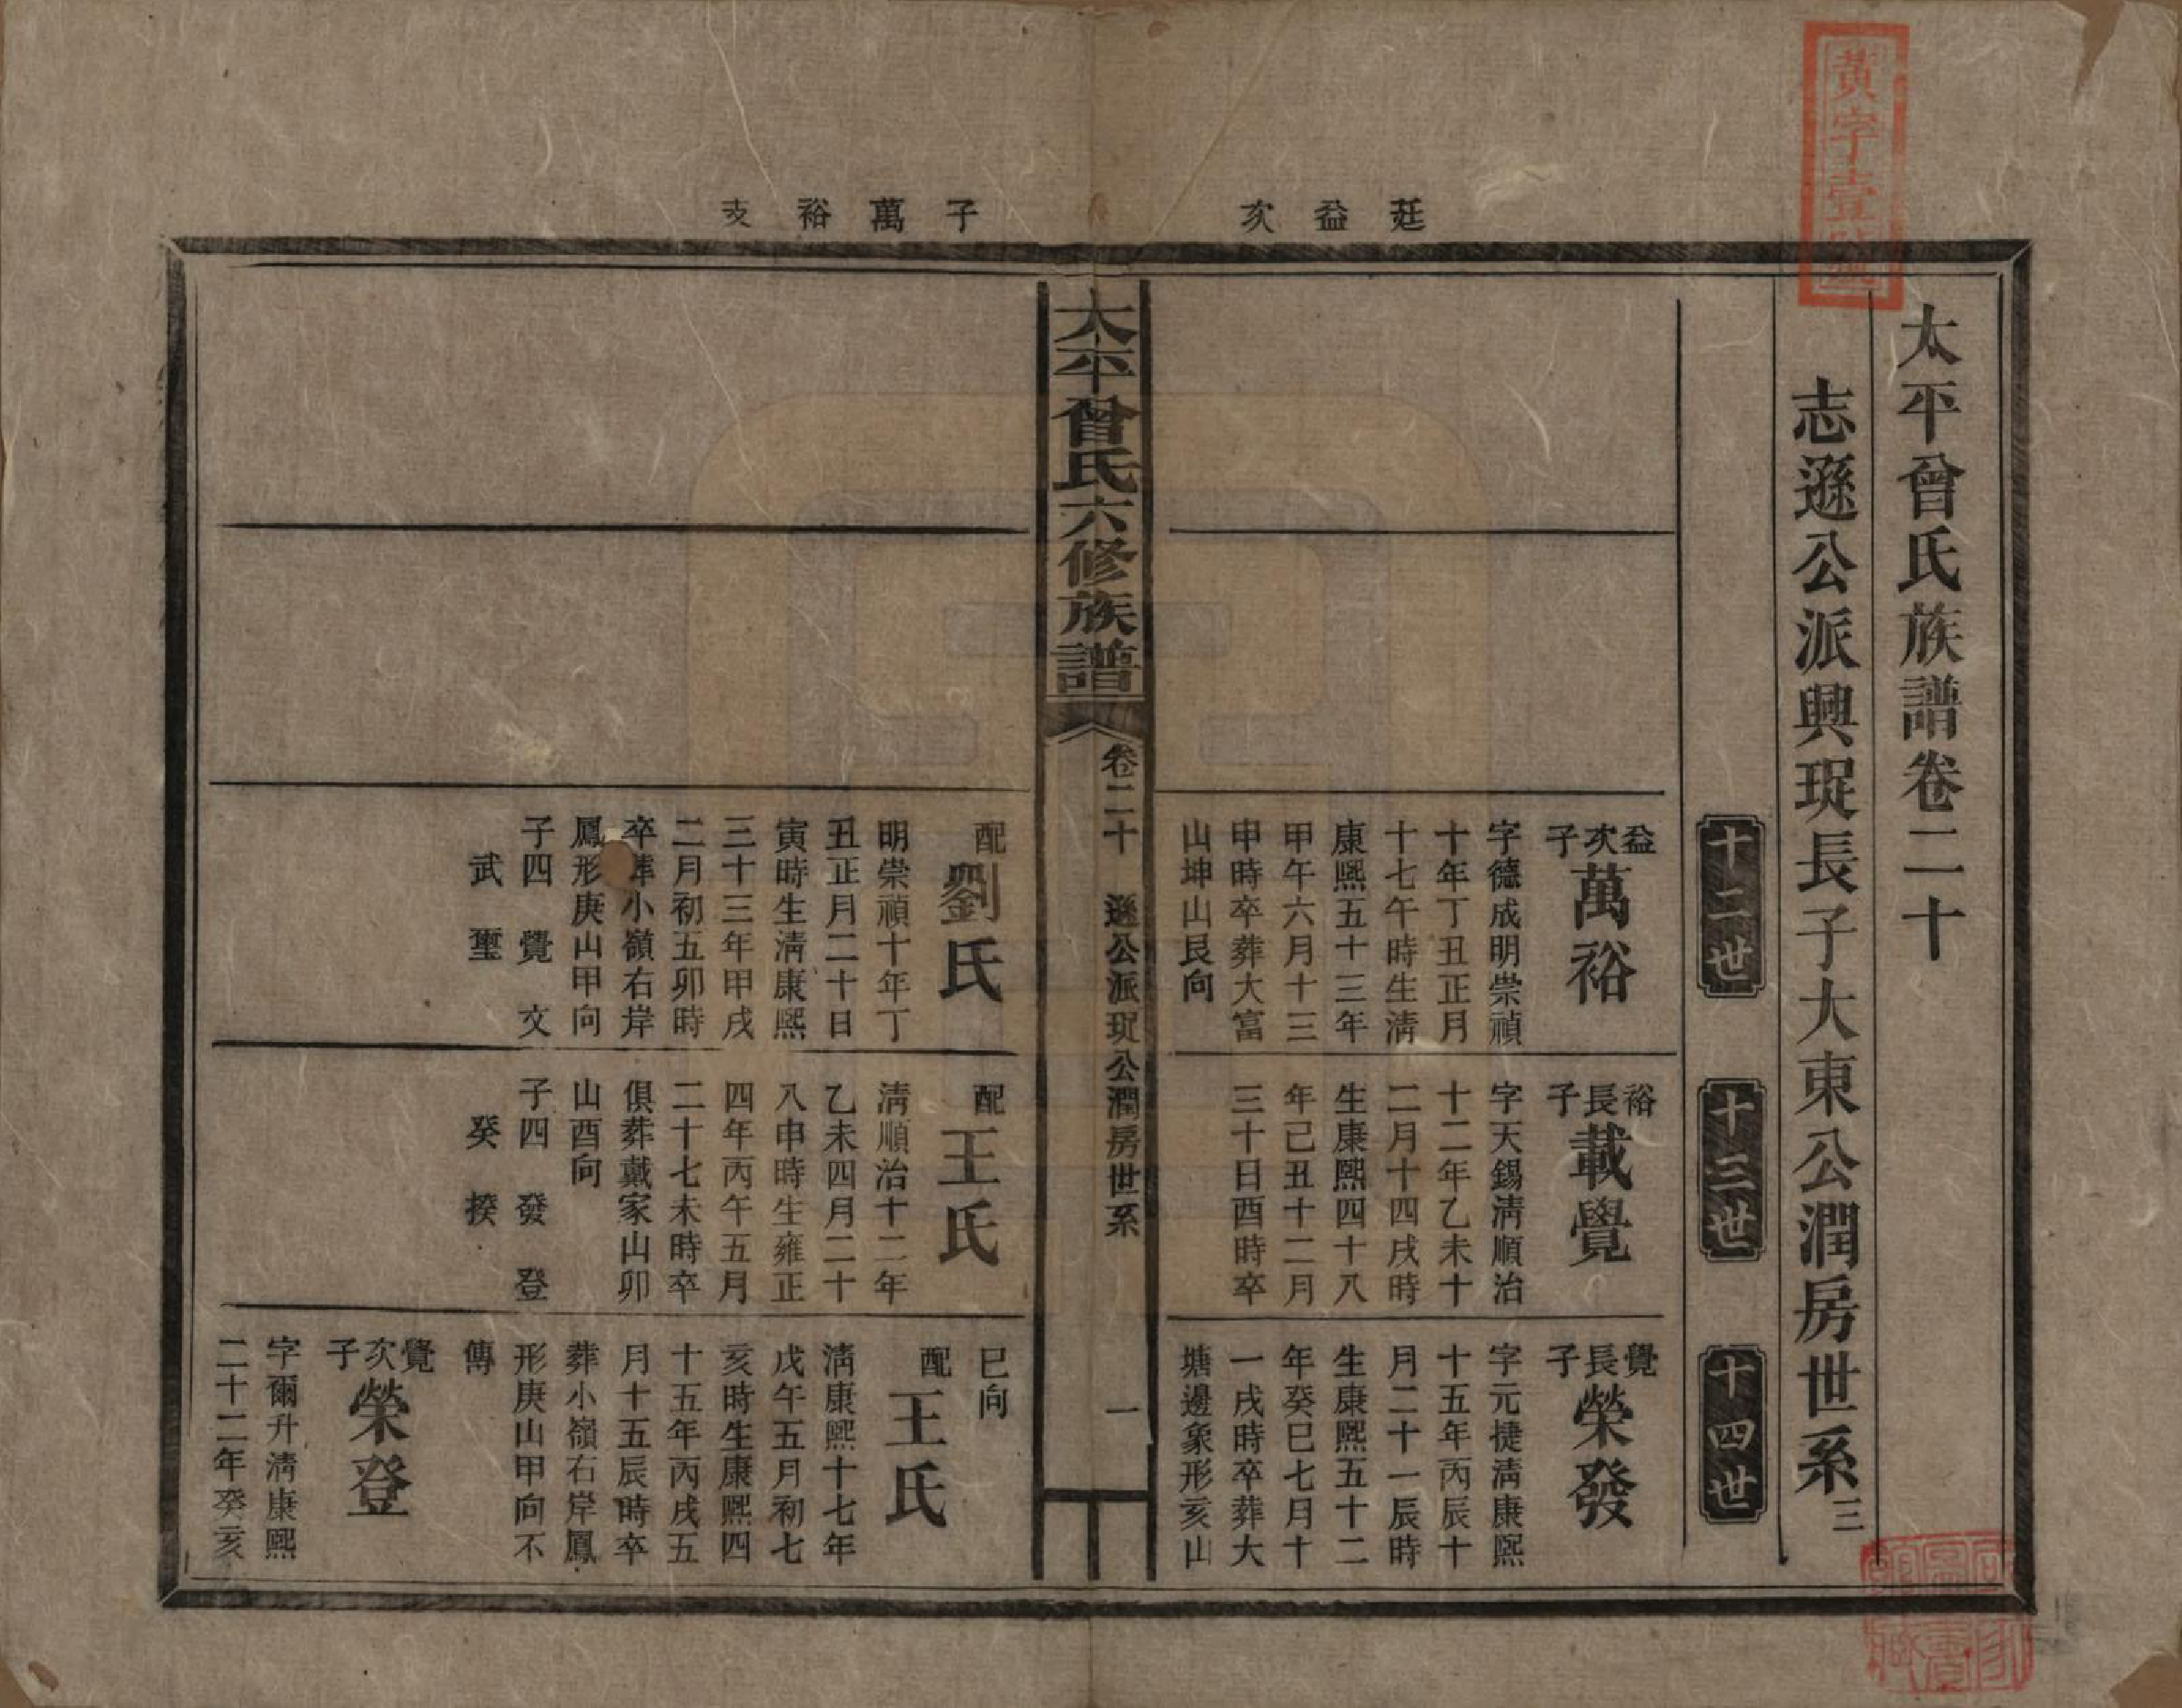 黃字壹號
太平曾氏族譜卷二十
志遜公派興珽長子大東公潤房世系三
十二世
十三世
十四世
廷益次
子萬裕支
益次子
萬裕
字德成明崇禎
十年丁丑正月
十七午時生淸
康熙五十三年
甲午六月十三
申時卒葬大富
山坤山艮向
裕長子
載覺
字天錫淸順治
十二年乙未十
二月十四戌時
生康熙四十八
年己丑十二月
三十日酉時卒
覺長子
榮發
字元捷淸康熙
十五年丙辰十
月二十一辰時
生康熙五十二
年癸巳七月十
一戌時卒葬大
塘邊象形亥山
太平曾氏六修族譜
卷二十
遜公派珽公潤房世系
一
配
劉氏
明崇禎十年丁
丑正月二十日
寅時生淸康熙
三十三年甲戌
二月初五卯時
卒葬小嶺右岸
鳳形庚山甲向
子四 覺 文
武 璽
配
王氏
淸順治十二年
乙未四月二十
八申時生雍正
四年丙午五月
二十七未時卒
俱葬戴家山卯
山酉向
子四 發 登
癸 揆
巳向
配
王氏
淸康熙十七年
戊午五月初七
亥時生康熙四
十五年丙戌五
月十五辰時卒
葬小嶺右岸鳳
形庚山甲向不
傳
覺次子
榮登
字爾升淸康熙
二十二年癸亥